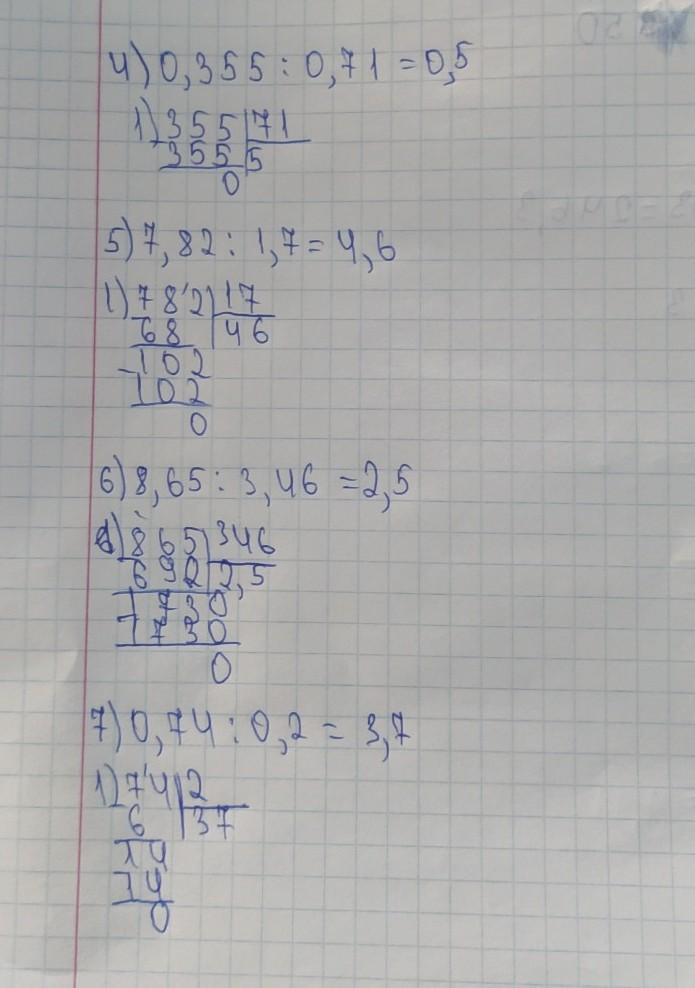 4) 0,355 : 0,71 = 0,5
1) 355 71
355 5
0
5) 7,82 : 1,7 = 4,6
1) 782 17
68 46
-102
102
0
6) 8,65 : 3,46 = 2,5
1) 865 346
692 2,5
1730
1730
0
7) 0,74 : 0,2 = 3,7
1) 74 2
6 37
14
14
0